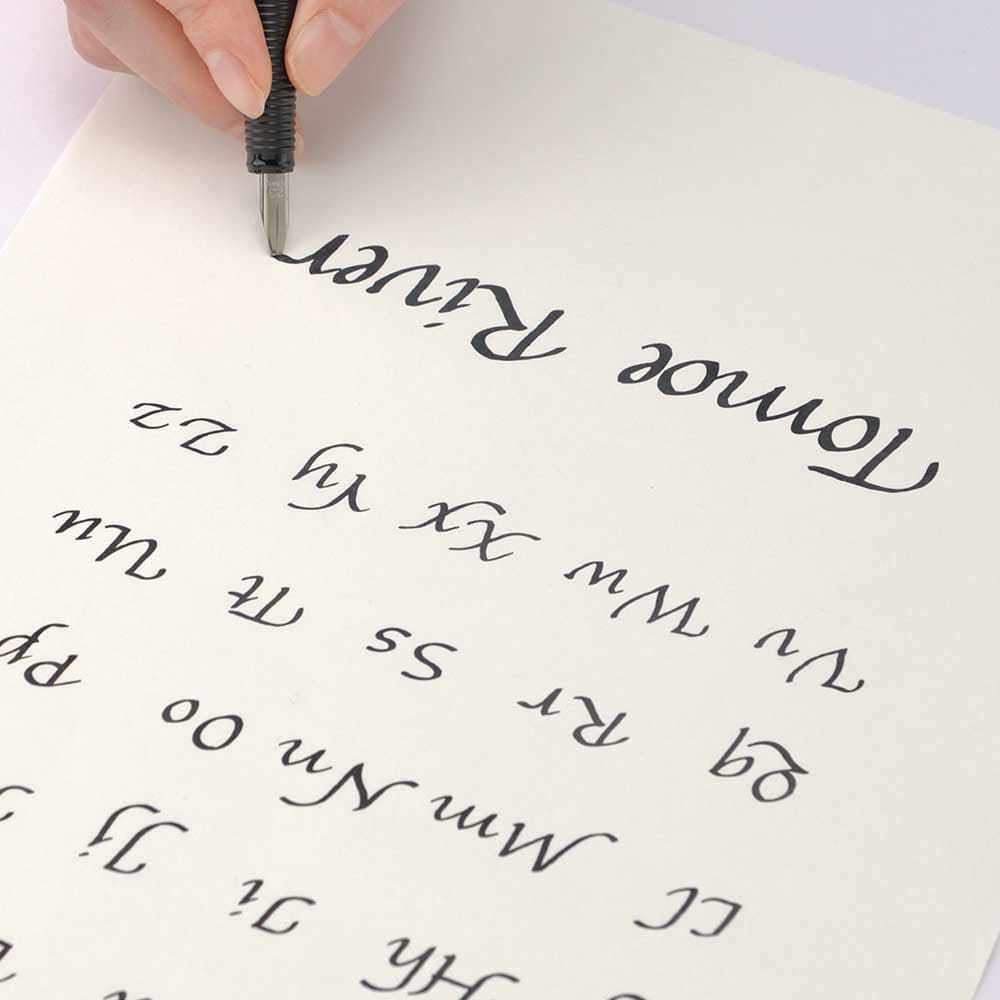 Hh Ii Jj
Ll Mm Nn Oo Pp
Qq Rr Ss Tt Uu
Vv Ww Xx Yy Zz
Tomoe River